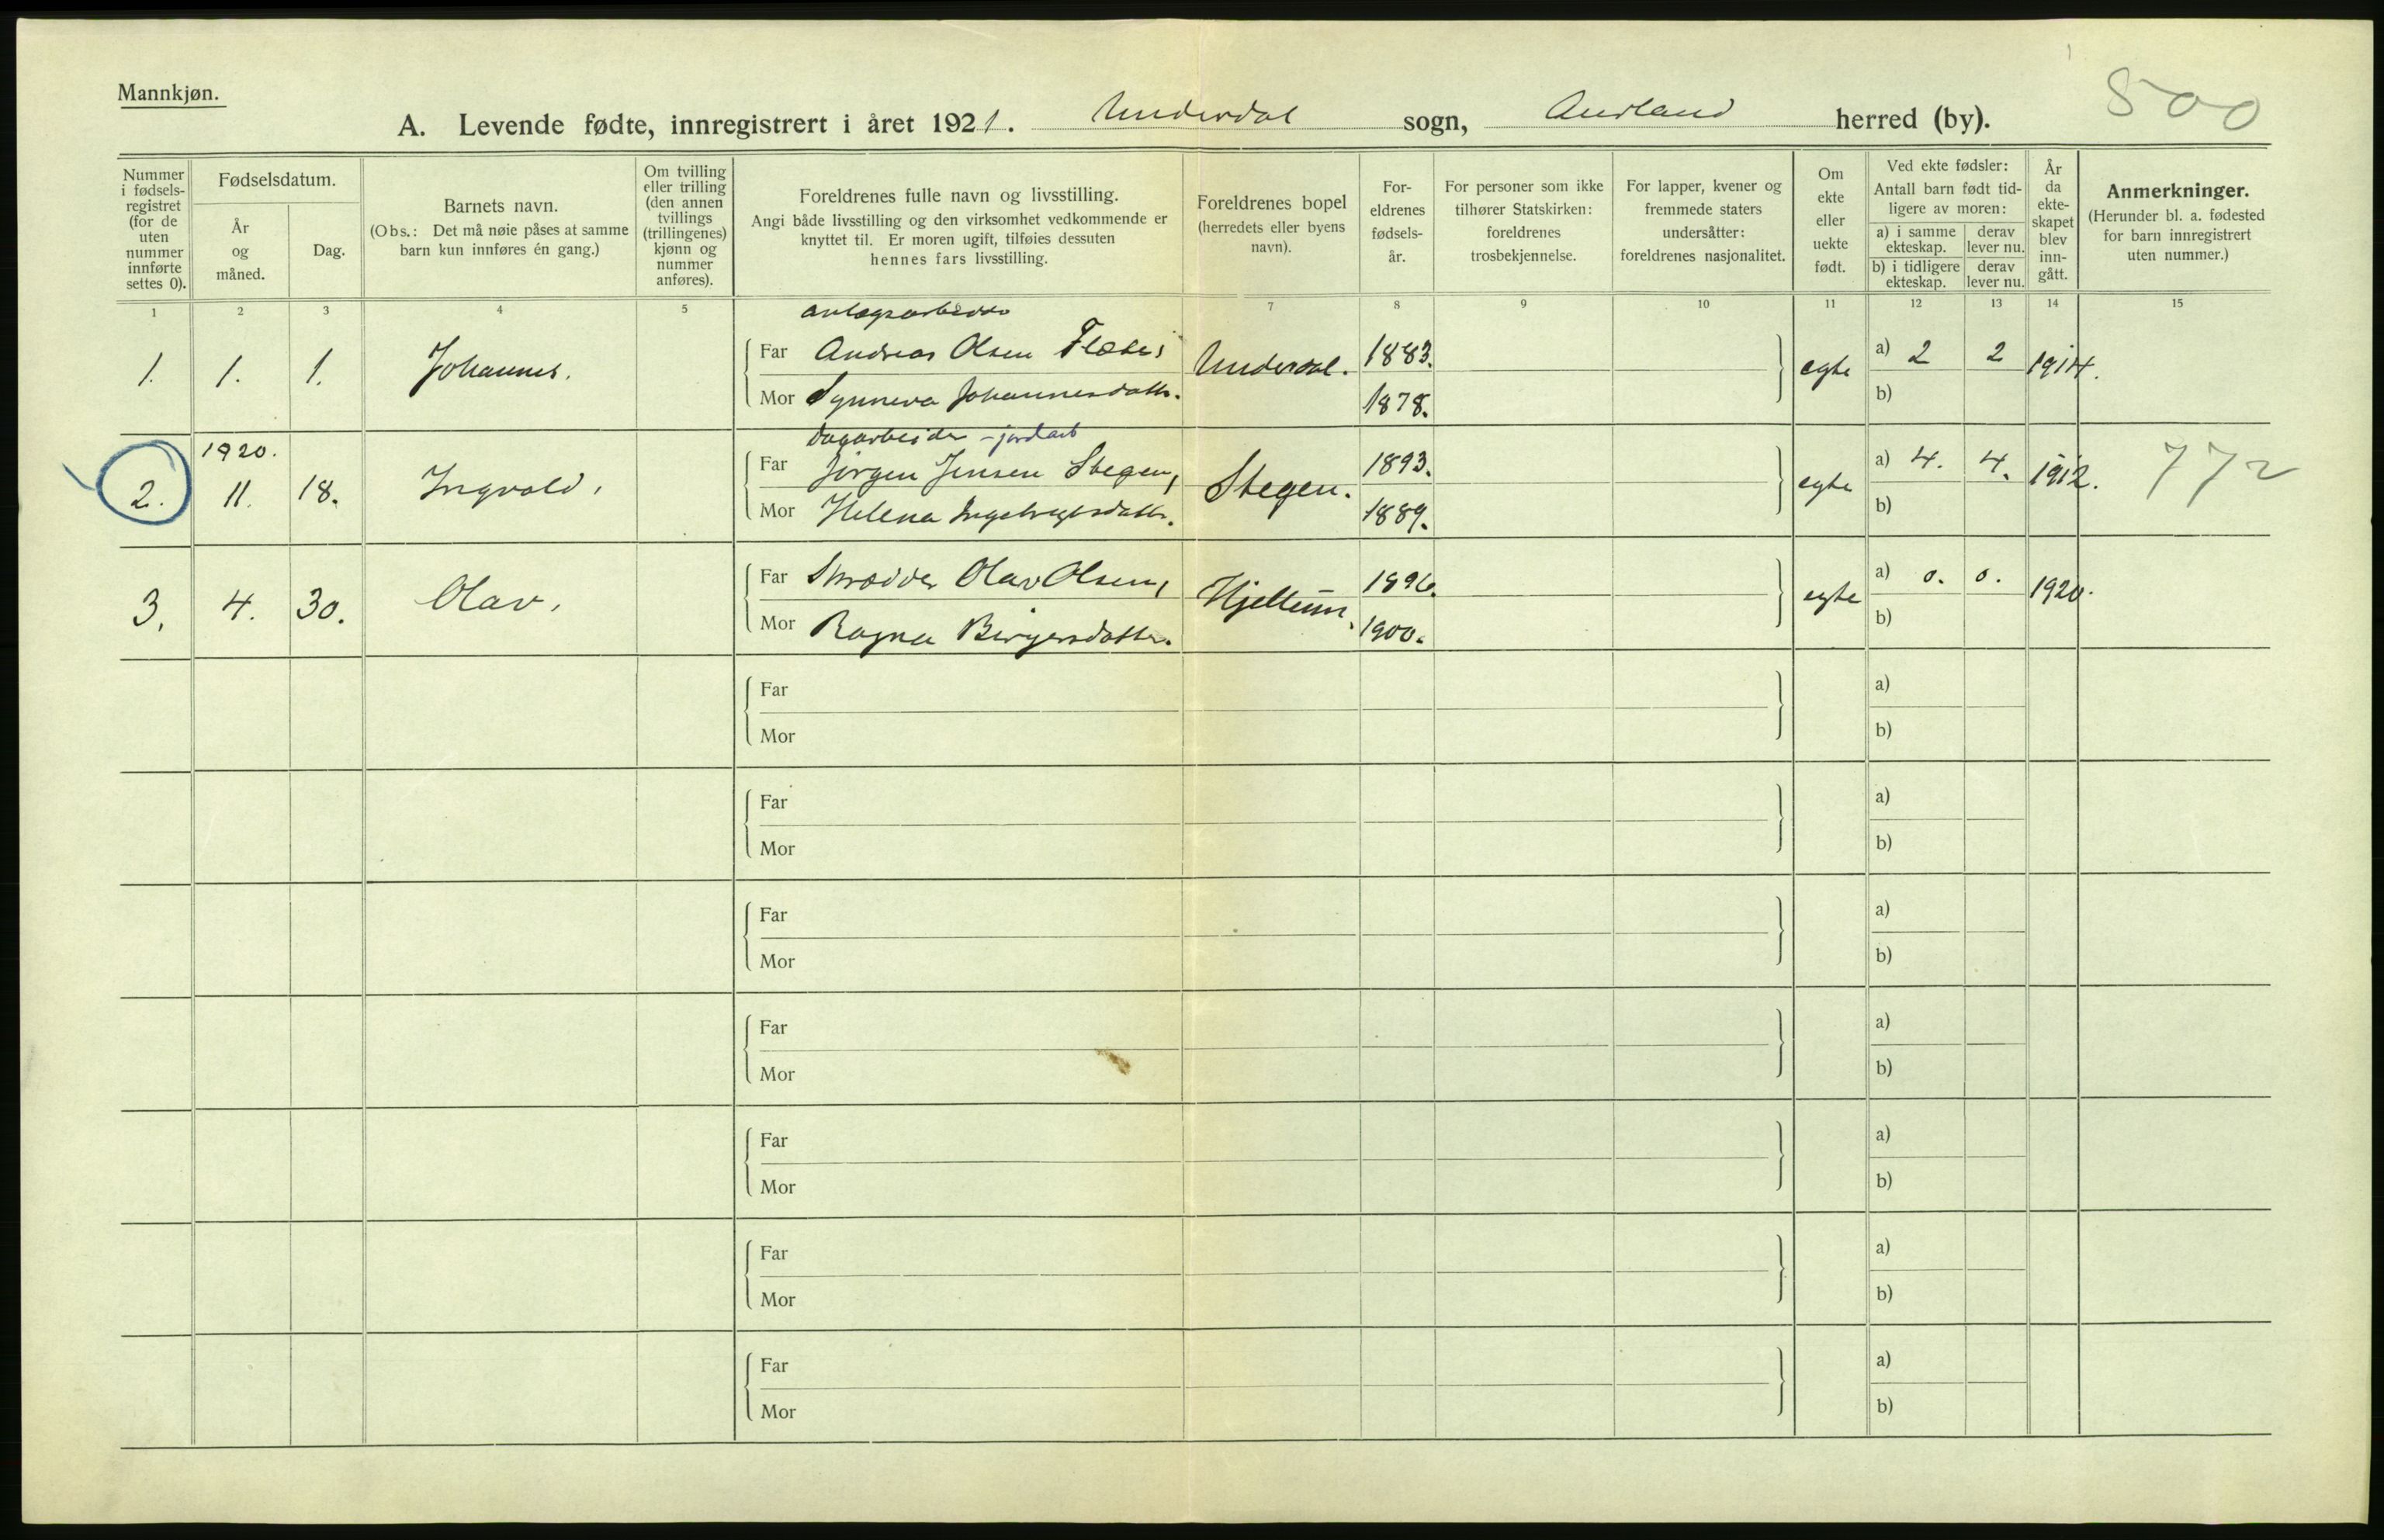 Mannkjøn.
A. Levende fødte, innregistrert i året 1921. Underdal sogn, Aurland herred (by).
500
Nummer i fødsels-registret (for de uten nummer innførte settes 0).
Fødselsdatum.
År og måned.
Dag.
Barnets navn.
(Obs.: Det må nøie påses at samme barn kun innføres én gang.)
Om tvilling eller trilling (den annen tvillings (trillingenes) kjønn og nummer anføres).
Foreldrenes fulle navn og livsstilling.
Angi både livsstilling og den virksomhet vedkommende er knyttet til. Er moren ugift, tilføies dessuten hennes fars livsstilling.
Foreldrenes bopel (herredets eller byens navn).
For-eldrenes fødsels-år.
For personer som ikke tilhører Statskirken: foreldrenes trosbekjennelse.
For lapper, kvener og fremmede staters undersåtter: foreldrenes nasjonalitet.
Om ekte eller uekte født.
Ved ekte fødsler:
Antall barn født tid-ligere av moren:
a) i samme ekteskap.
derav lever nu.
b) i tidligere ekteskap.
derav lever nu.
År da ekte-skapet blev inn-gått.
Anmerkninger.
(Herunder bl. a. fødested for barn innregistrert uten nummer.)
1 2 3 4 5 7 8 9 10 11 12 13 14 15
anlægsarbeider
1. 1. 1. Johannes. Far Andreas Olsen Underdal. 1883. egte a) 2 2 1914.
Mor Synneva Johannesdatter. 1878. b)
dagarbeider - jordarb
1920.
2. 11. 18. Ingvald. Far Jørgen Jensen Stegen, Stegen. 1893. egte a) 4. 4. 1912. 772
Mor Helena Ingebrigtsdatter. 1889. b)
3. 4. 30. Olav. Far Skrædder Olav Olsen, Hjellum. 1896. egte a) 0. 0. 1920.
Mor Ragna Birgersdatter. 1900. b)
Far a)
Mor b)
Far a)
Mor b)
Far a)
Mor b)
Far a)
Mor b)
Far a)
Mor b)
Far a)
Mor b)
Far a)
Mor b)